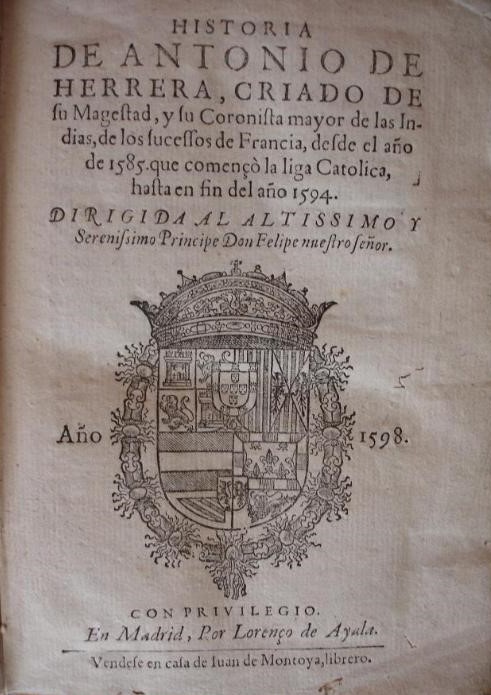 HISTORIA
DE ANTONIO DE
HERRERA, CRIADO DE
ſu Mageſtad, y ſu Coroniſta mayor de las In-
dias, de los ſuceſſos de Francia, deſde el año
de 1585. que començò la liga Catolica,
haſta en fin del año 1594.
DIRIGIDA AL ALTISSIMO Y
Sereniſsimo Principe Don Felipe nueſtro ſeñor.
Año 1598.
CON PRIVILEGIO.
En Madrid, Por Lorenço de Ayala.
Vendeſe en caſa de Iuan de Montoya, librero.